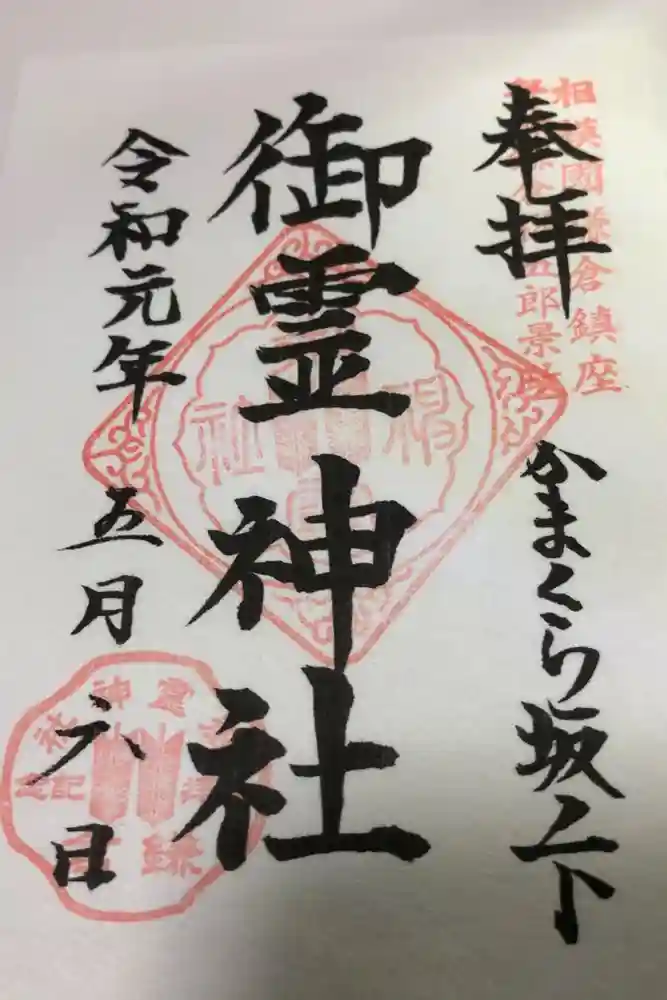 奉拝
相模国鎌倉鎮座
五郎景政
かまくら坂ノ下
御霊神社
令和元年
五月
六日